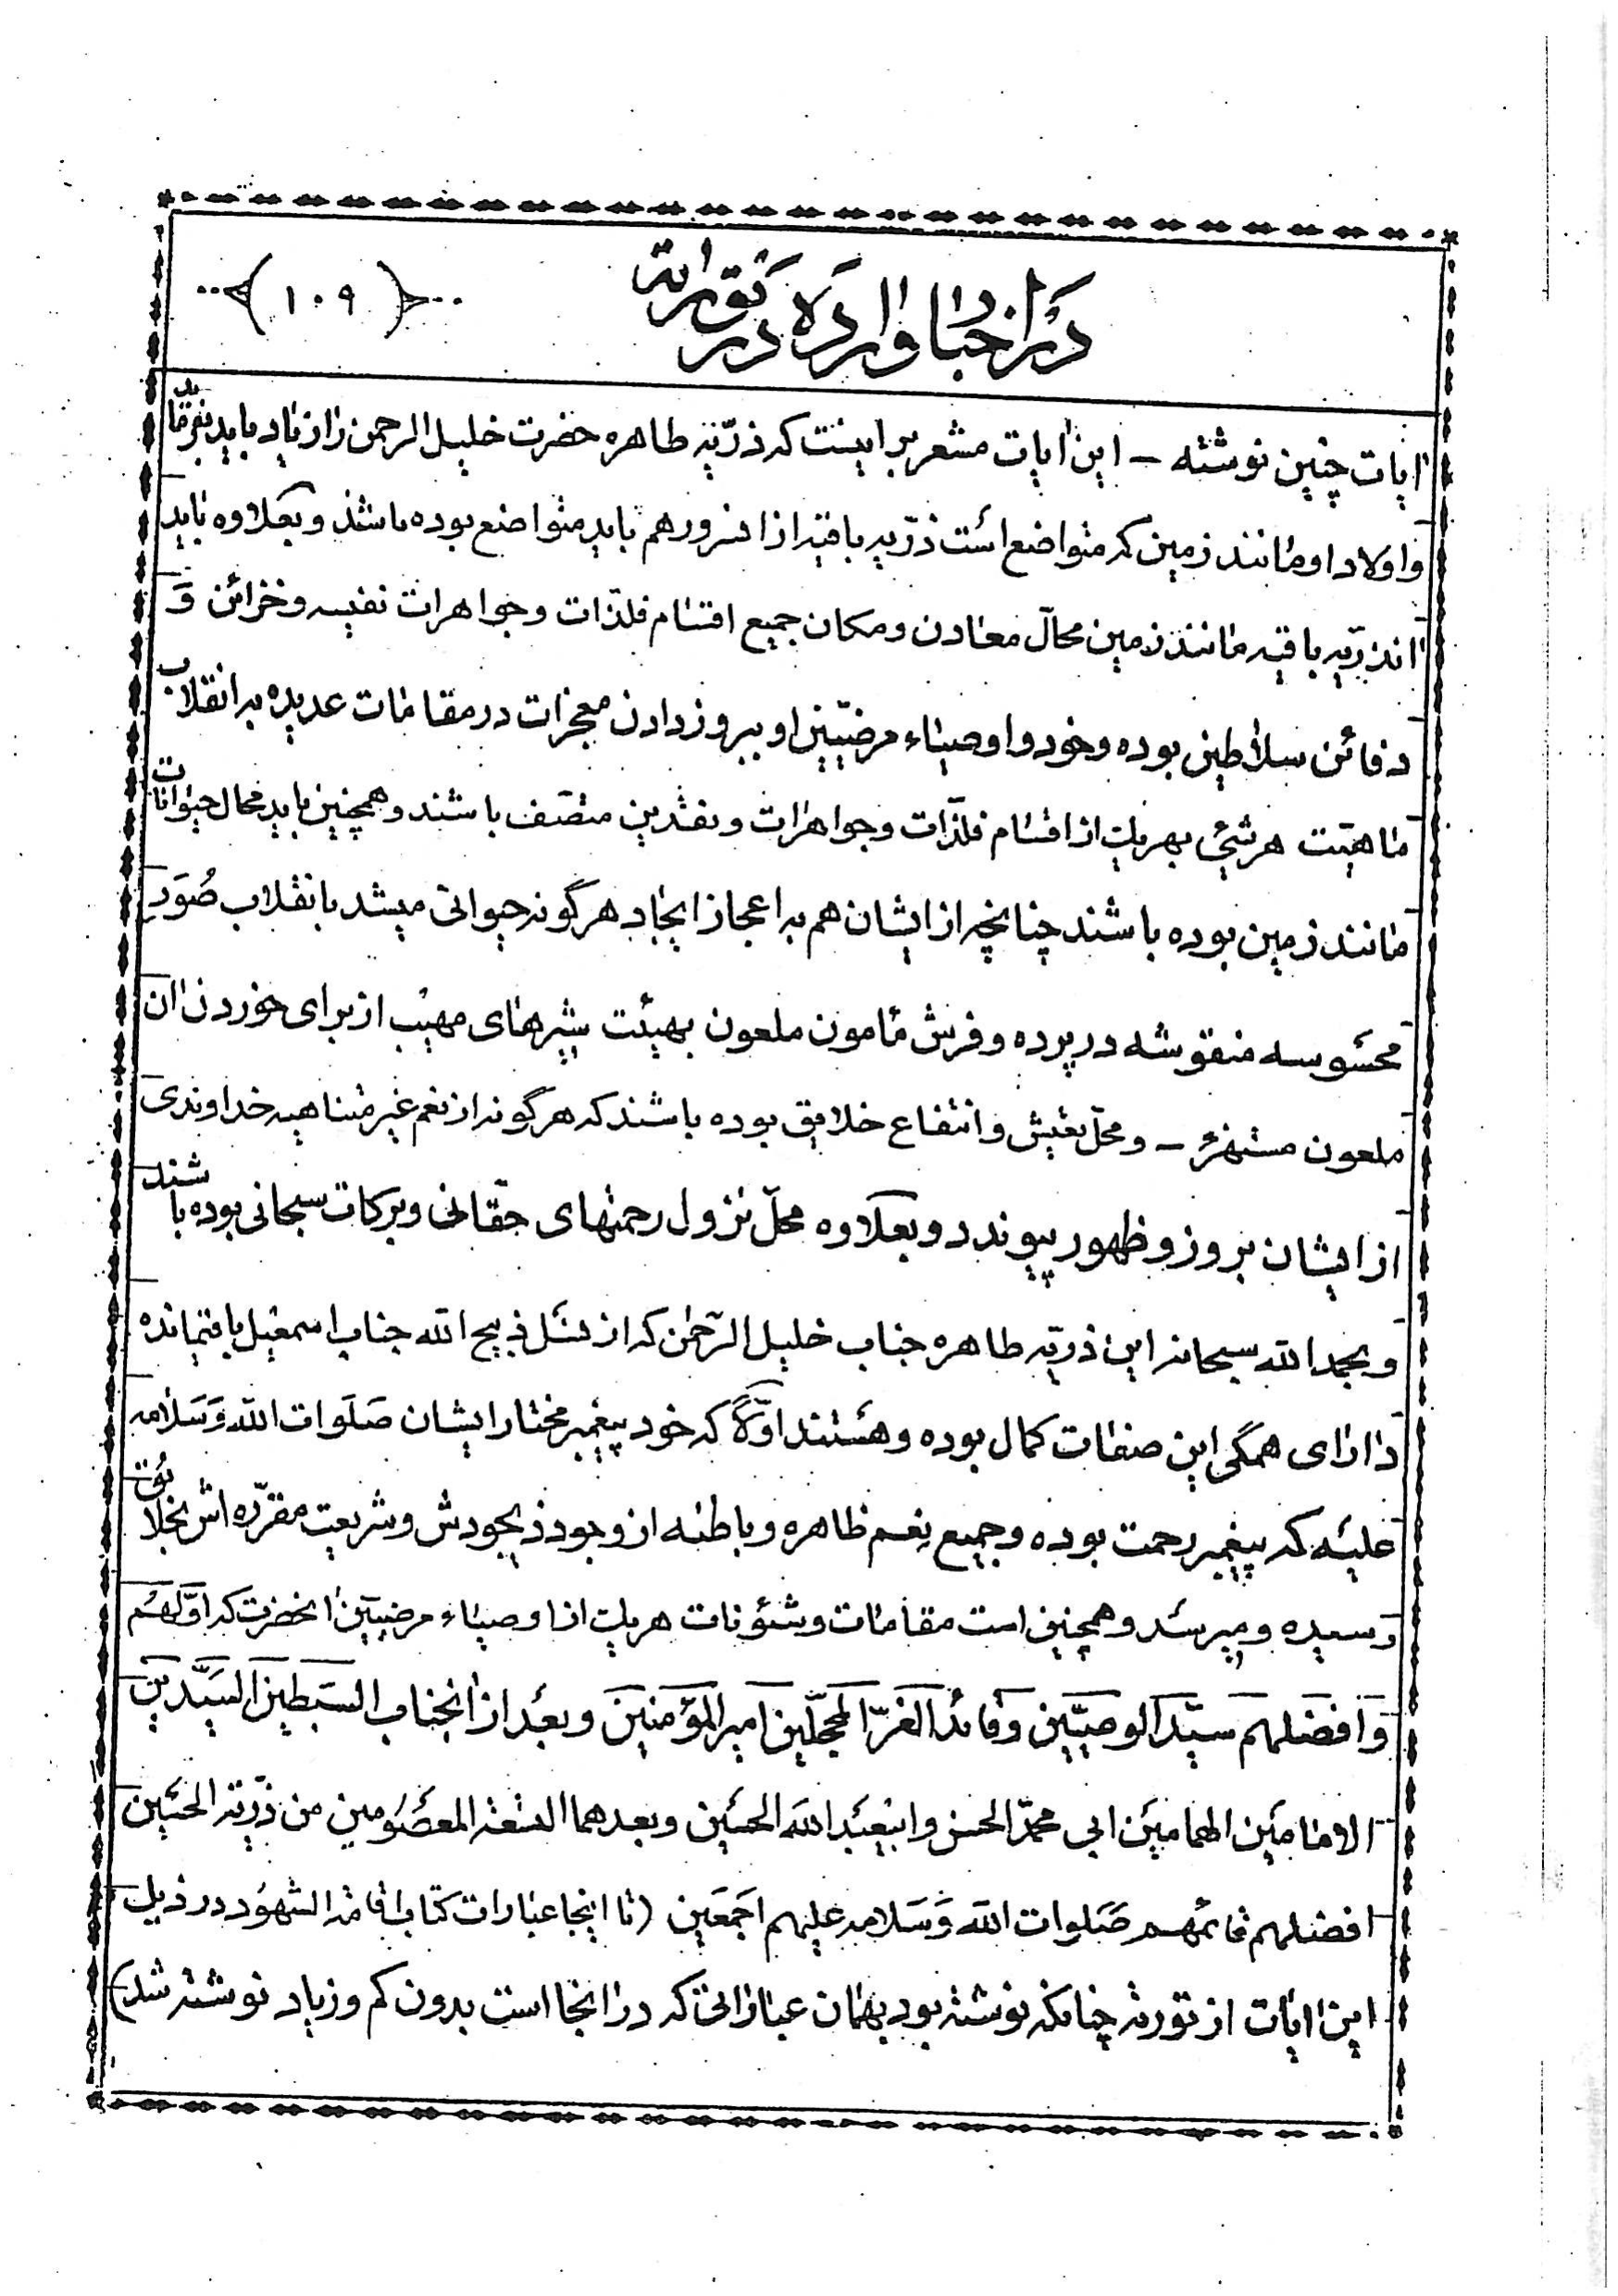 در اخبار وارده در توراته
(۱۰۹)
ایات چنین نوشته — این ایات مشعر بر اینست که ذرّیه طاهره حضرت خلیل الرحمن را زیاد باید بفرماید
و اولاد او مانند زمین که متواضع است ذرّیه باقیه از انسرور هم باید متواضع بوده باشند و بعلاوه باید
انذرّیه باقیه مانند زمین محالّ معادن و مکان جمیع اقسام فلذّات و جواهرات نفیسه و خزائن وَ
دفائن سلاطین بوده و خود و اوصیاء مرضیّین او ببروز دادن معجزات در مقامات عدیده به انقلاب
ماهیّت هر شیئی بهر یك از اقسام فلذّات و جواهرات و نقدین متصّف باشند و همچنین باید محال حیوانات
مانند زمین بوده باشند چنانچه از ایشان هم به اعجاز ایجاد هر گونه حیوانی میشد بانقلاب صُوَرِ
محسوسه منقوشه در پرده و فرش مأمون ملعون بهیئت شیرهای مهیب از برای خوردن ان
ملعون مستهزء — و محلّ تعیش و انتفاع خلایق بوده باشند که هر گونه از نعم غیر متناهیه خداوندی
از ایشان بروز و ظهور پیوندد و بعلاوه محلّ نزول رحمتهای حقّانی و برکات سبحانی بوده باشند
و بحمد الله سبحانه این ذریّه طاهره جناب خلیل الرّحمن که از نسل ذبیح الله جناب اسمعیل باقیمانده
دارای همگی این صفات کمال بوده و هستند اوّلاً که خود پیغمبر مختار ایشان صَلَوات الله وَ سَلامه
علیه که پیغمبر رحمت بوده و جمیع نِعم ظاهره و باطنه از وجود ذیجودش و شریعت مقرّره اش بخلایق
رسیده و میرسد و همچنین است مقامات و شئونات هر یك از اوصیاء مرضیّین انحضرت که اوّلهُم
وَ افضَلهم سیّد الوصیّین وَ قائد الغرّ المحجّلین امیر المؤمنین و بعد از انجناب السبطین السیّدین
الامامَین الهمامَین ابی محمّد الحسن و ابیعبد الله الحسین و بعدهما التسعة المعصُومین من ذرّیة الحسین
افضلهم قائمهم صَلوات الله وَ سَلامه علیهم اجمَعین (تا اینجا عبارات کتاب اقامة الشهُود در ذیل
این ایات از توریة چنانکه نوشته بود بهمان عباراتی که در انجا است بدون کم و زیاد نوشته شد)